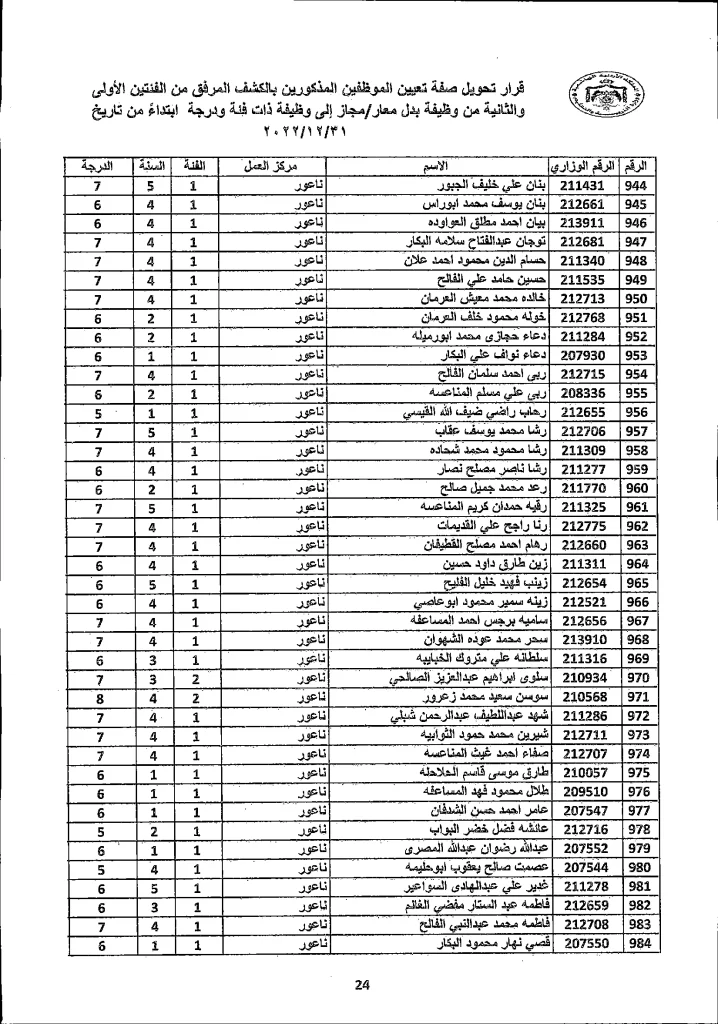 قرار تحويل صفة تعيين الموظفين المذكورين بالكشف المرفق من الفئتين الأولى
والثانية من وظيفة بدل معار/مجاز إلى وظيفة ذات فئة ودرجة ابتداءً من تاريخ
٢٠٢٢/١٢/٣١
الرقم الرقم الوزاري الاسم مركز العمل الفئة السنة الدرجة
944 211431 بنان علي خليف الجبور ناعور 1 5 7
945 212661 بنان يوسف محمد ابوراس ناعور 1 4 6
946 213911 بيان احمد مطلق العواوده ناعور 1 4 6
947 212681 توجان عبدالفتاح سلامه البكار ناعور 1 4 7
948 211340 حسام الدين محمود احمد علان ناعور 1 4 7
949 211535 حسين حامد علي الفالح ناعور 1 4 7
950 212713 خالده محمد معيش العرمان ناعور 1 4 7
951 212768 خوله محمود خلف العرمان ناعور 1 2 6
952 211284 دعاء حجازى محمد ابورميله ناعور 1 2 6
953 207930 دعاء نواف علي البكار ناعور 1 1 6
954 212715 ربى احمد سلمان الفالح ناعور 1 4 7
955 208336 ربى علي مسلم المناعسه ناعور 1 2 6
956 212655 رحاب راضي ضيف الله القيسي ناعور 1 1 5
957 212706 رشا محمد يوسف عقاب ناعور 1 5 7
958 211309 رشا محمود محمد شحاده ناعور 1 4 7
959 211277 رشا ناصر مصلح نصار ناعور 1 4 6
960 211770 رعد محمد جميل صالح ناعور 1 2 6
961 211325 رقيه حمدان كريم المناعسه ناعور 1 5 7
962 212775 رنا راجح علي القديمات ناعور 1 4 7
963 212660 رهام احمد مصلح القطيفان ناعور 1 4 7
964 211311 زين طارق داود حسين ناعور 1 4 6
965 212654 زينب فهيد خليل الفليح ناعور 1 5 6
966 212521 زينه سمير محمود ابوعاصي ناعور 1 4 6
967 212656 ساميه برجس احمد المساعفه ناعور 1 4 7
968 213910 سحر محمد عوده الشهوان ناعور 1 4 7
969 211316 سلطانه علي متروك الخبايبه ناعور 1 3 6
970 210934 سلوى ابراهيم عبدالعزيز الصالحي ناعور 2 3 7
971 210568 سوسن سعيد محمد زعرور ناعور 2 4 8
972 211286 شهد عبداللطيف عبدالرحمن شبلي ناعور 1 4 7
973 212711 شيرين محمد حمود الثوابيه ناعور 1 4 7
974 212707 صفاء احمد غيث المناعسه ناعور 1 4 7
975 210057 طارق موسى قاسم الحلاحله ناعور 1 1 6
976 209510 طلال محمود فهد المساعفه ناعور 1 1 6
977 207547 عامر احمد حسن الشدفان ناعور 1 1 6
978 212716 عائشه فضل خضر البواب ناعور 1 2 5
979 207552 عبدالله رضوان عبدالله المصرى ناعور 1 1 6
980 207544 عصمت صالح يعقوب ابوحليمه ناعور 1 4 5
981 211278 غدير علي عبدالهادى السواعير ناعور 1 5 6
982 212659 فاطمه عبد الستار مفضي الغانم ناعور 1 3 6
983 212708 فاطمه محمد عبدالنبي الفالح ناعور 1 4 7
984 207550 قصي نهار محمود البكار ناعور 1 1 6
24